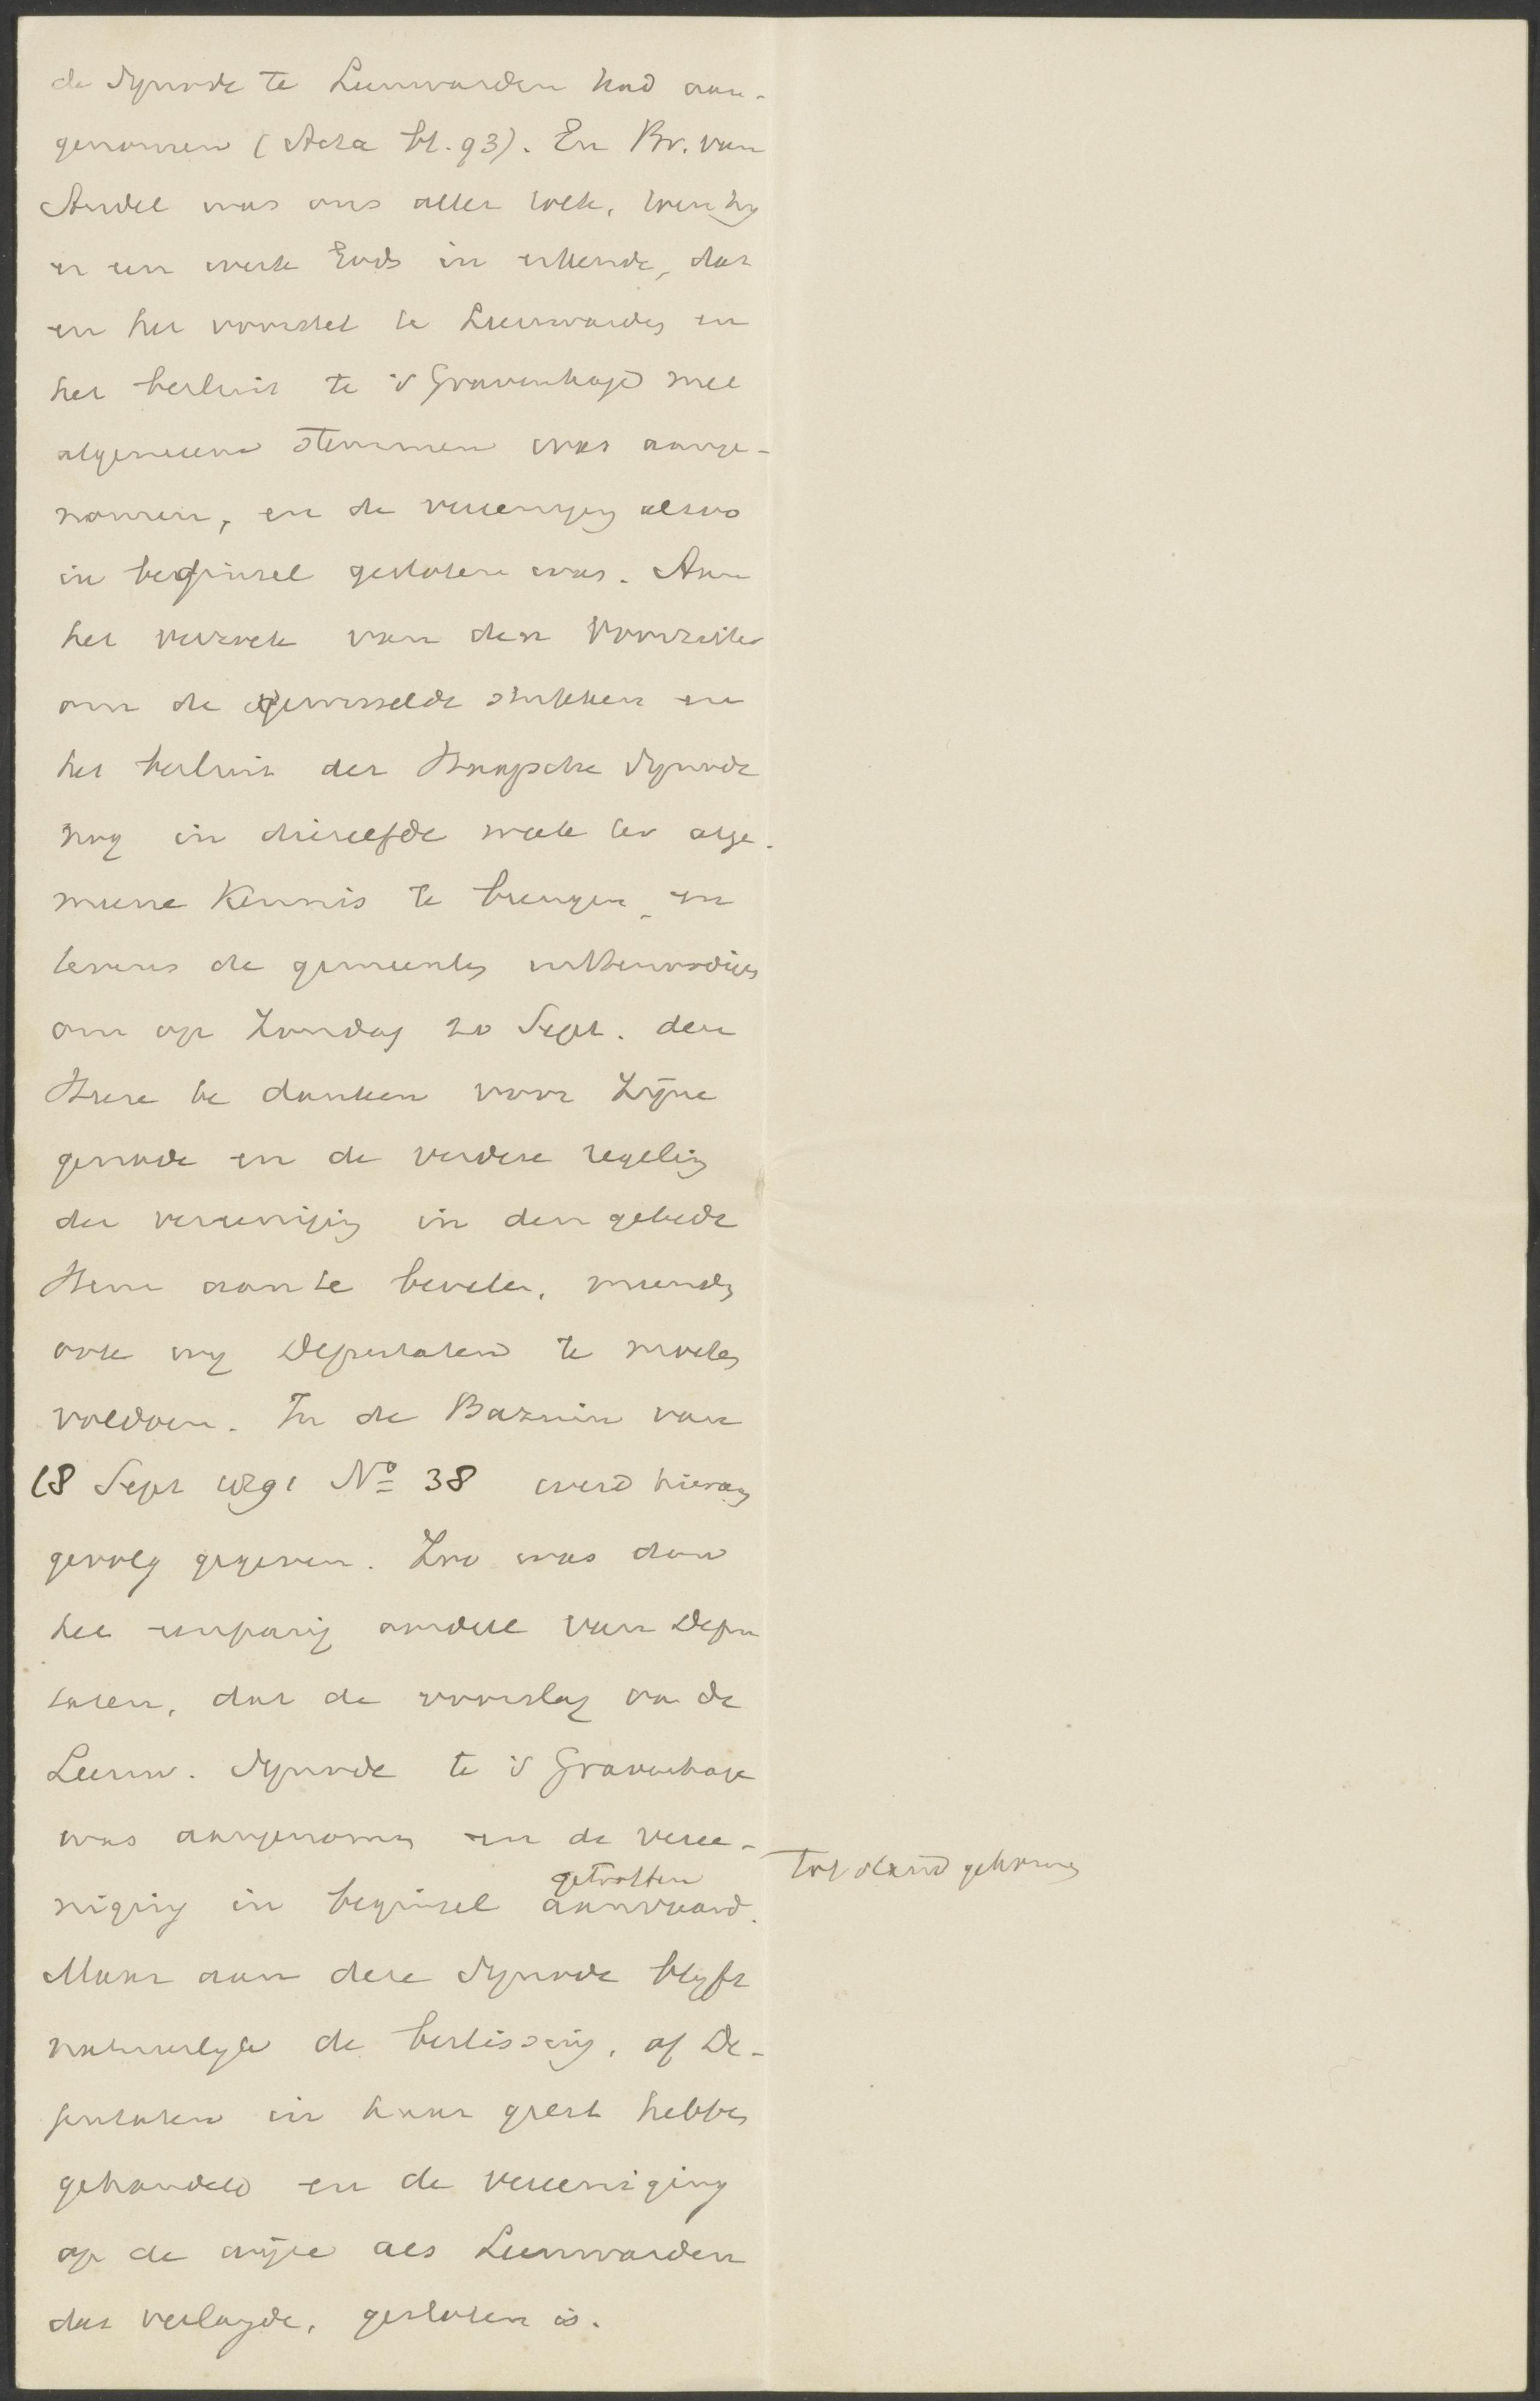 de Synode te Leeuwarden had aan-
genomen (Acta bl. 93). En Br. van
Andel was ons aller tolk, toen hij
er een werk Gods in erkende, dat
en het voorstel te Leeuwarden en
het besluit te 's Gravenhage met
algemeene stemmen was aange-
nomen, en de vereeniging alzoo
in beginsel gesloten was. Aan
het verzoek van den Voorzitter
om de gewisselde stukken en
het besluit der Haagsche Synode
nog in diezelfde week ter alge-
meene kennis te brengen en
tevens de gemeenten uittenoodigen
om op Zondag 20 Sept. den
Heere te danken voor Zijne
genade en de verdere regeling
der vereeniging in den gebede
Hem aan te bevelen, meenden
ook wij Deputaten te moeten
voldoen. In de Bazuin van
18 Sept 1891 No 38 werd hieraan
gevolg gegeven. Zoo was dan
het eenparig oordeel van Depu
taten, dat de voorslag van de
Leeuw. Synode te 's Gravenhage
was aangenomen en de veree-
getroffen tot stand gekomen
niging in beginsel aanvaard.
Maar aan deze Synode blijft
natuurlijk de beslissing, of De-
putaten in haar geest hebben
gehandeld en de vereeniging
op de wijze als Leeuwarden
dat verlangde, gesloten is.